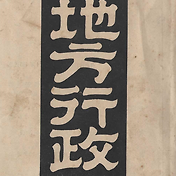 地方行政